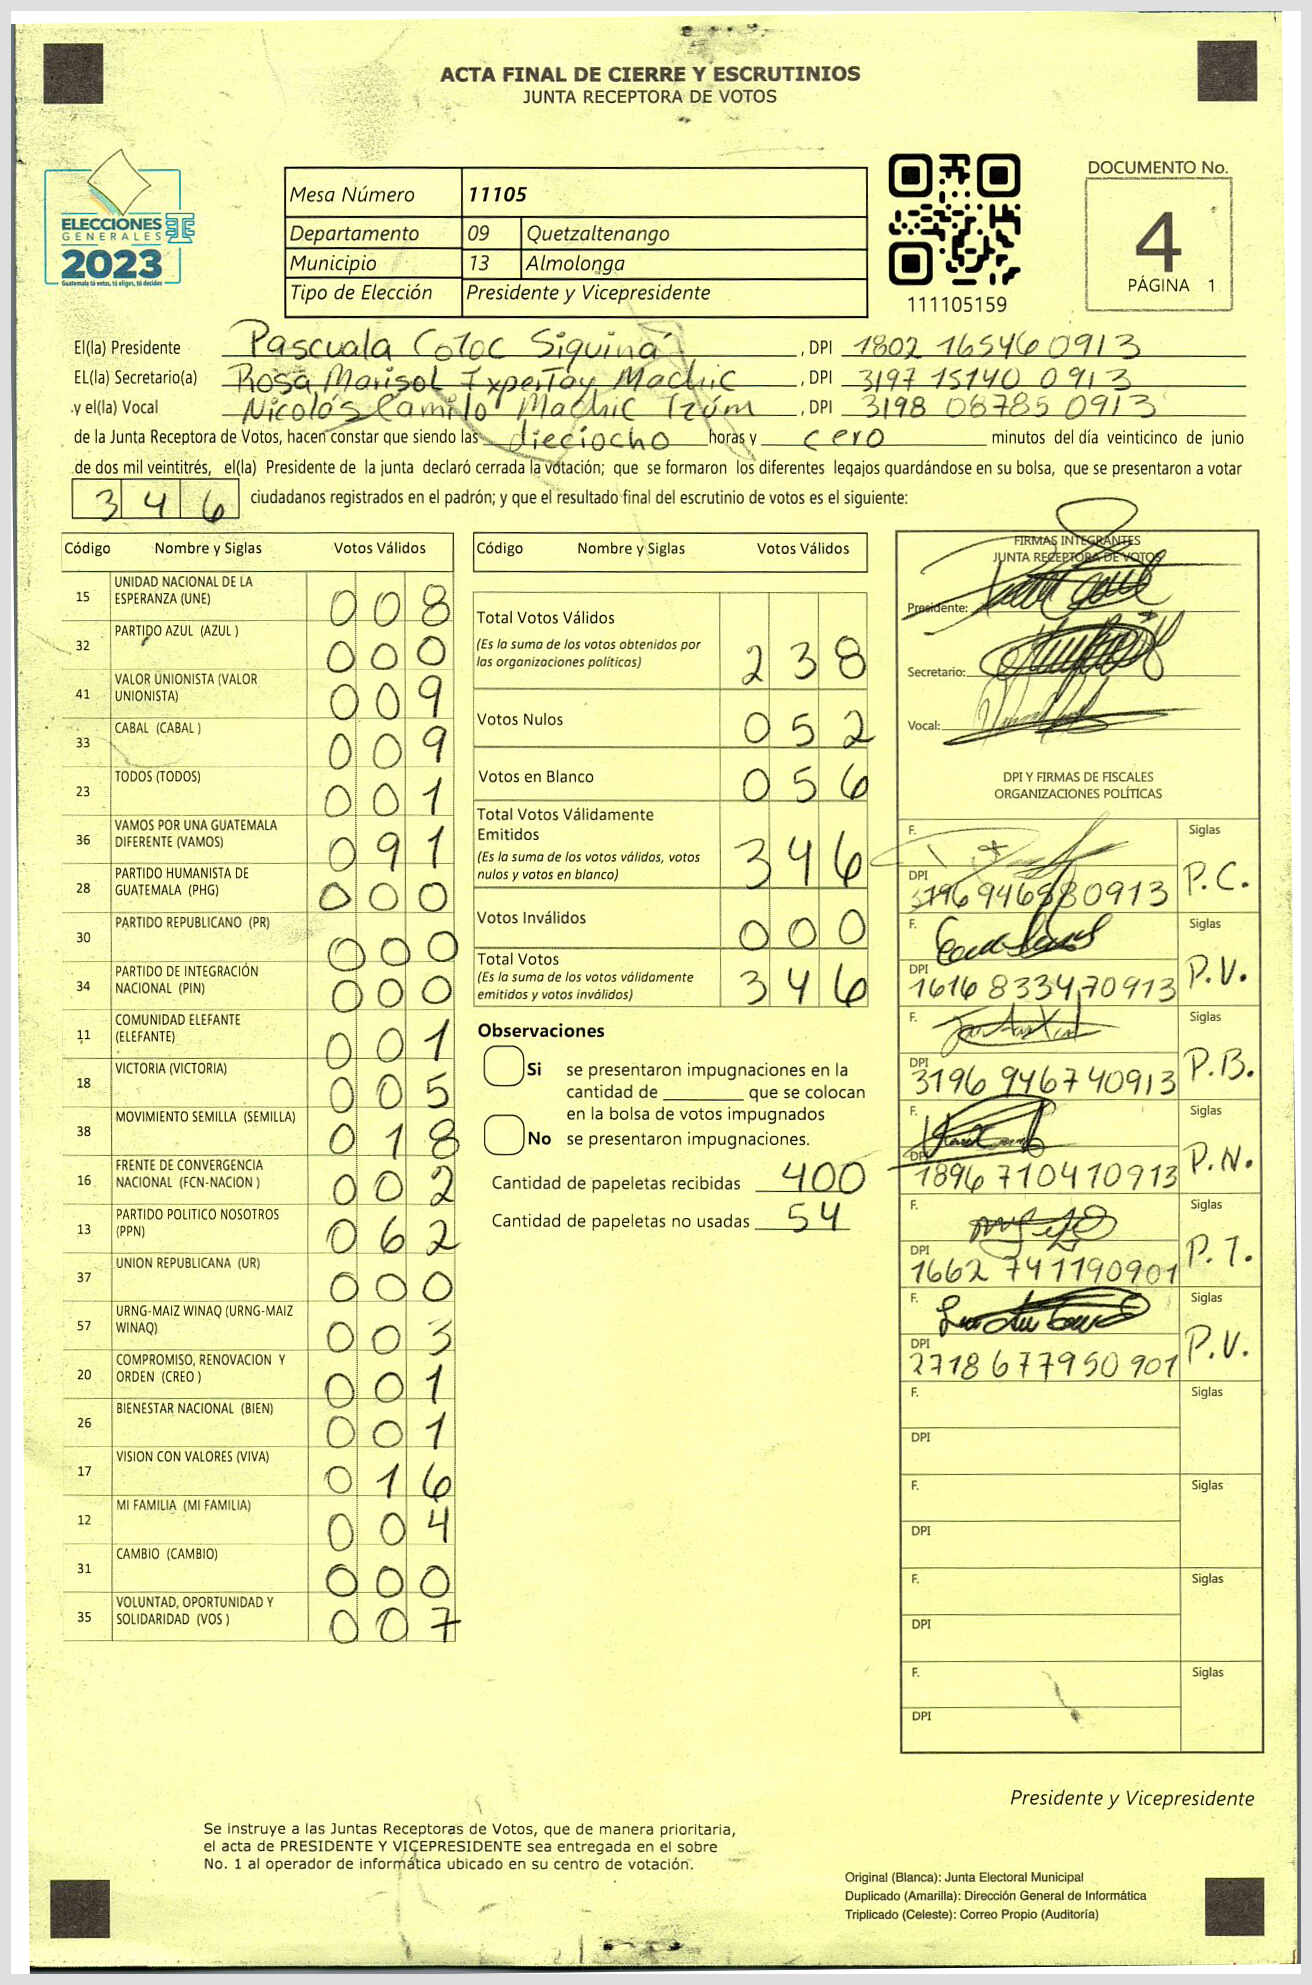 ACTA FINAL DE CIERRE Y ESCRUTINIOS
JUNTA RECEPTORA DE VOTOS
ELECCIONES
GENERALES
2023
Guatemala tú votas, tú eliges, tú decides
Mesa Número 11105
Departamento 09 Quetzaltenango
Municipio 13 Almolonga
Tipo de Elección Presidente y Vicepresidente
111105159
DOCUMENTO No.
4
PÁGINA 1
El(la) Presidente Pascuala Cotoc Siquiná, DPI 1802 16546 0913
EL(la) Secretario(a) Rosa Marisol Ixpertay Machic, DPI 3197 15140 0913
y el(la) Vocal Nicolás Camilo Machic Izúm, DPI 3198 08785 0913
de la Junta Receptora de Votos, hacen constar que siendo las dieciocho horas y cero minutos del día veinticinco de junio
de dos mil veintitrés, el(la) Presidente de la junta declaró cerrada la votación; que se formaron los diferentes legajos guardándose en su bolsa, que se presentaron a votar
346 ciudadanos registrados en el padrón; y que el resultado final del escrutinio de votos es el siguiente:
Código Nombre y Siglas Votos Válidos
15 UNIDAD NACIONAL DE LA ESPERANZA (UNE) 008
32 PARTIDO AZUL (AZUL ) 000
41 VALOR UNIONISTA (VALOR UNIONISTA) 009
33 CABAL (CABAL ) 009
23 TODOS (TODOS) 001
36 VAMOS POR UNA GUATEMALA DIFERENTE (VAMOS) 091
28 PARTIDO HUMANISTA DE GUATEMALA (PHG) 000
30 PARTIDO REPUBLICANO (PR) 000
34 PARTIDO DE INTEGRACIÓN NACIONAL (PIN) 000
11 COMUNIDAD ELEFANTE (ELEFANTE) 001
18 VICTORIA (VICTORIA) 005
38 MOVIMIENTO SEMILLA (SEMILLA) 018
16 FRENTE DE CONVERGENCIA NACIONAL (FCN-NACION ) 002
13 PARTIDO POLITICO NOSOTROS (PPN) 062
37 UNION REPUBLICANA (UR) 000
57 URNG-MAIZ WINAQ (URNG-MAIZ WINAQ) 003
20 COMPROMISO, RENOVACION Y ORDEN (CREO ) 001
26 BIENESTAR NACIONAL (BIEN) 001
17 VISION CON VALORES (VIVA) 016
12 MI FAMILIA (MI FAMILIA) 004
31 CAMBIO (CAMBIO) 000
35 VOLUNTAD, OPORTUNIDAD Y SOLIDARIDAD (VOS ) 007
Código Nombre y Siglas Votos Válidos
Total Votos Válidos 238
(Es la suma de los votos obtenidos por
las organizaciones políticas)
Votos Nulos 052
Votos en Blanco 056
Total Votos Válidamente
Emitidos 346
(Es la suma de los votos válidos, votos
nulos y votos en blanco)
Votos Inválidos 000
Total Votos 346
(Es la suma de los votos válidamente
emitidos y votos inválidos)
Observaciones
Si se presentaron impugnaciones en la
cantidad de ________ que se colocan
en la bolsa de votos impugnados
No se presentaron impugnaciones.
Cantidad de papeletas recibidas 400
Cantidad de papeletas no usadas 54
FIRMAS INTEGRANTES
JUNTA RECEPTORA DE VOTOS
Presidente:
Secretario:
Vocal:
DPI Y FIRMAS DE FISCALES
ORGANIZACIONES POLÍTICAS
F. Siglas
DPI 3196 946880913 P.C.
F. Siglas
DPI 1616 833470913 P.V.
F. Siglas
DPI 3196 946740913 P.B.
F. Siglas
DPI 1896 710410913 P.N.
F. Siglas
DPI 1662 741190901 P.T.
F. Siglas
DPI 2718 677950901 P.V.
F. Siglas
DPI
F. Siglas
DPI
F. Siglas
DPI
F. Siglas
DPI
Presidente y Vicepresidente
Se instruye a las Juntas Receptoras de Votos, que de manera prioritaria,
el acta de PRESIDENTE Y VICEPRESIDENTE sea entregada en el sobre
No. 1 al operador de informática ubicado en su centro de votación.
Original (Blanca): Junta Electoral Municipal
Duplicado (Amarilla): Dirección General de Informática
Triplicado (Celeste): Correo Propio (Auditoría)